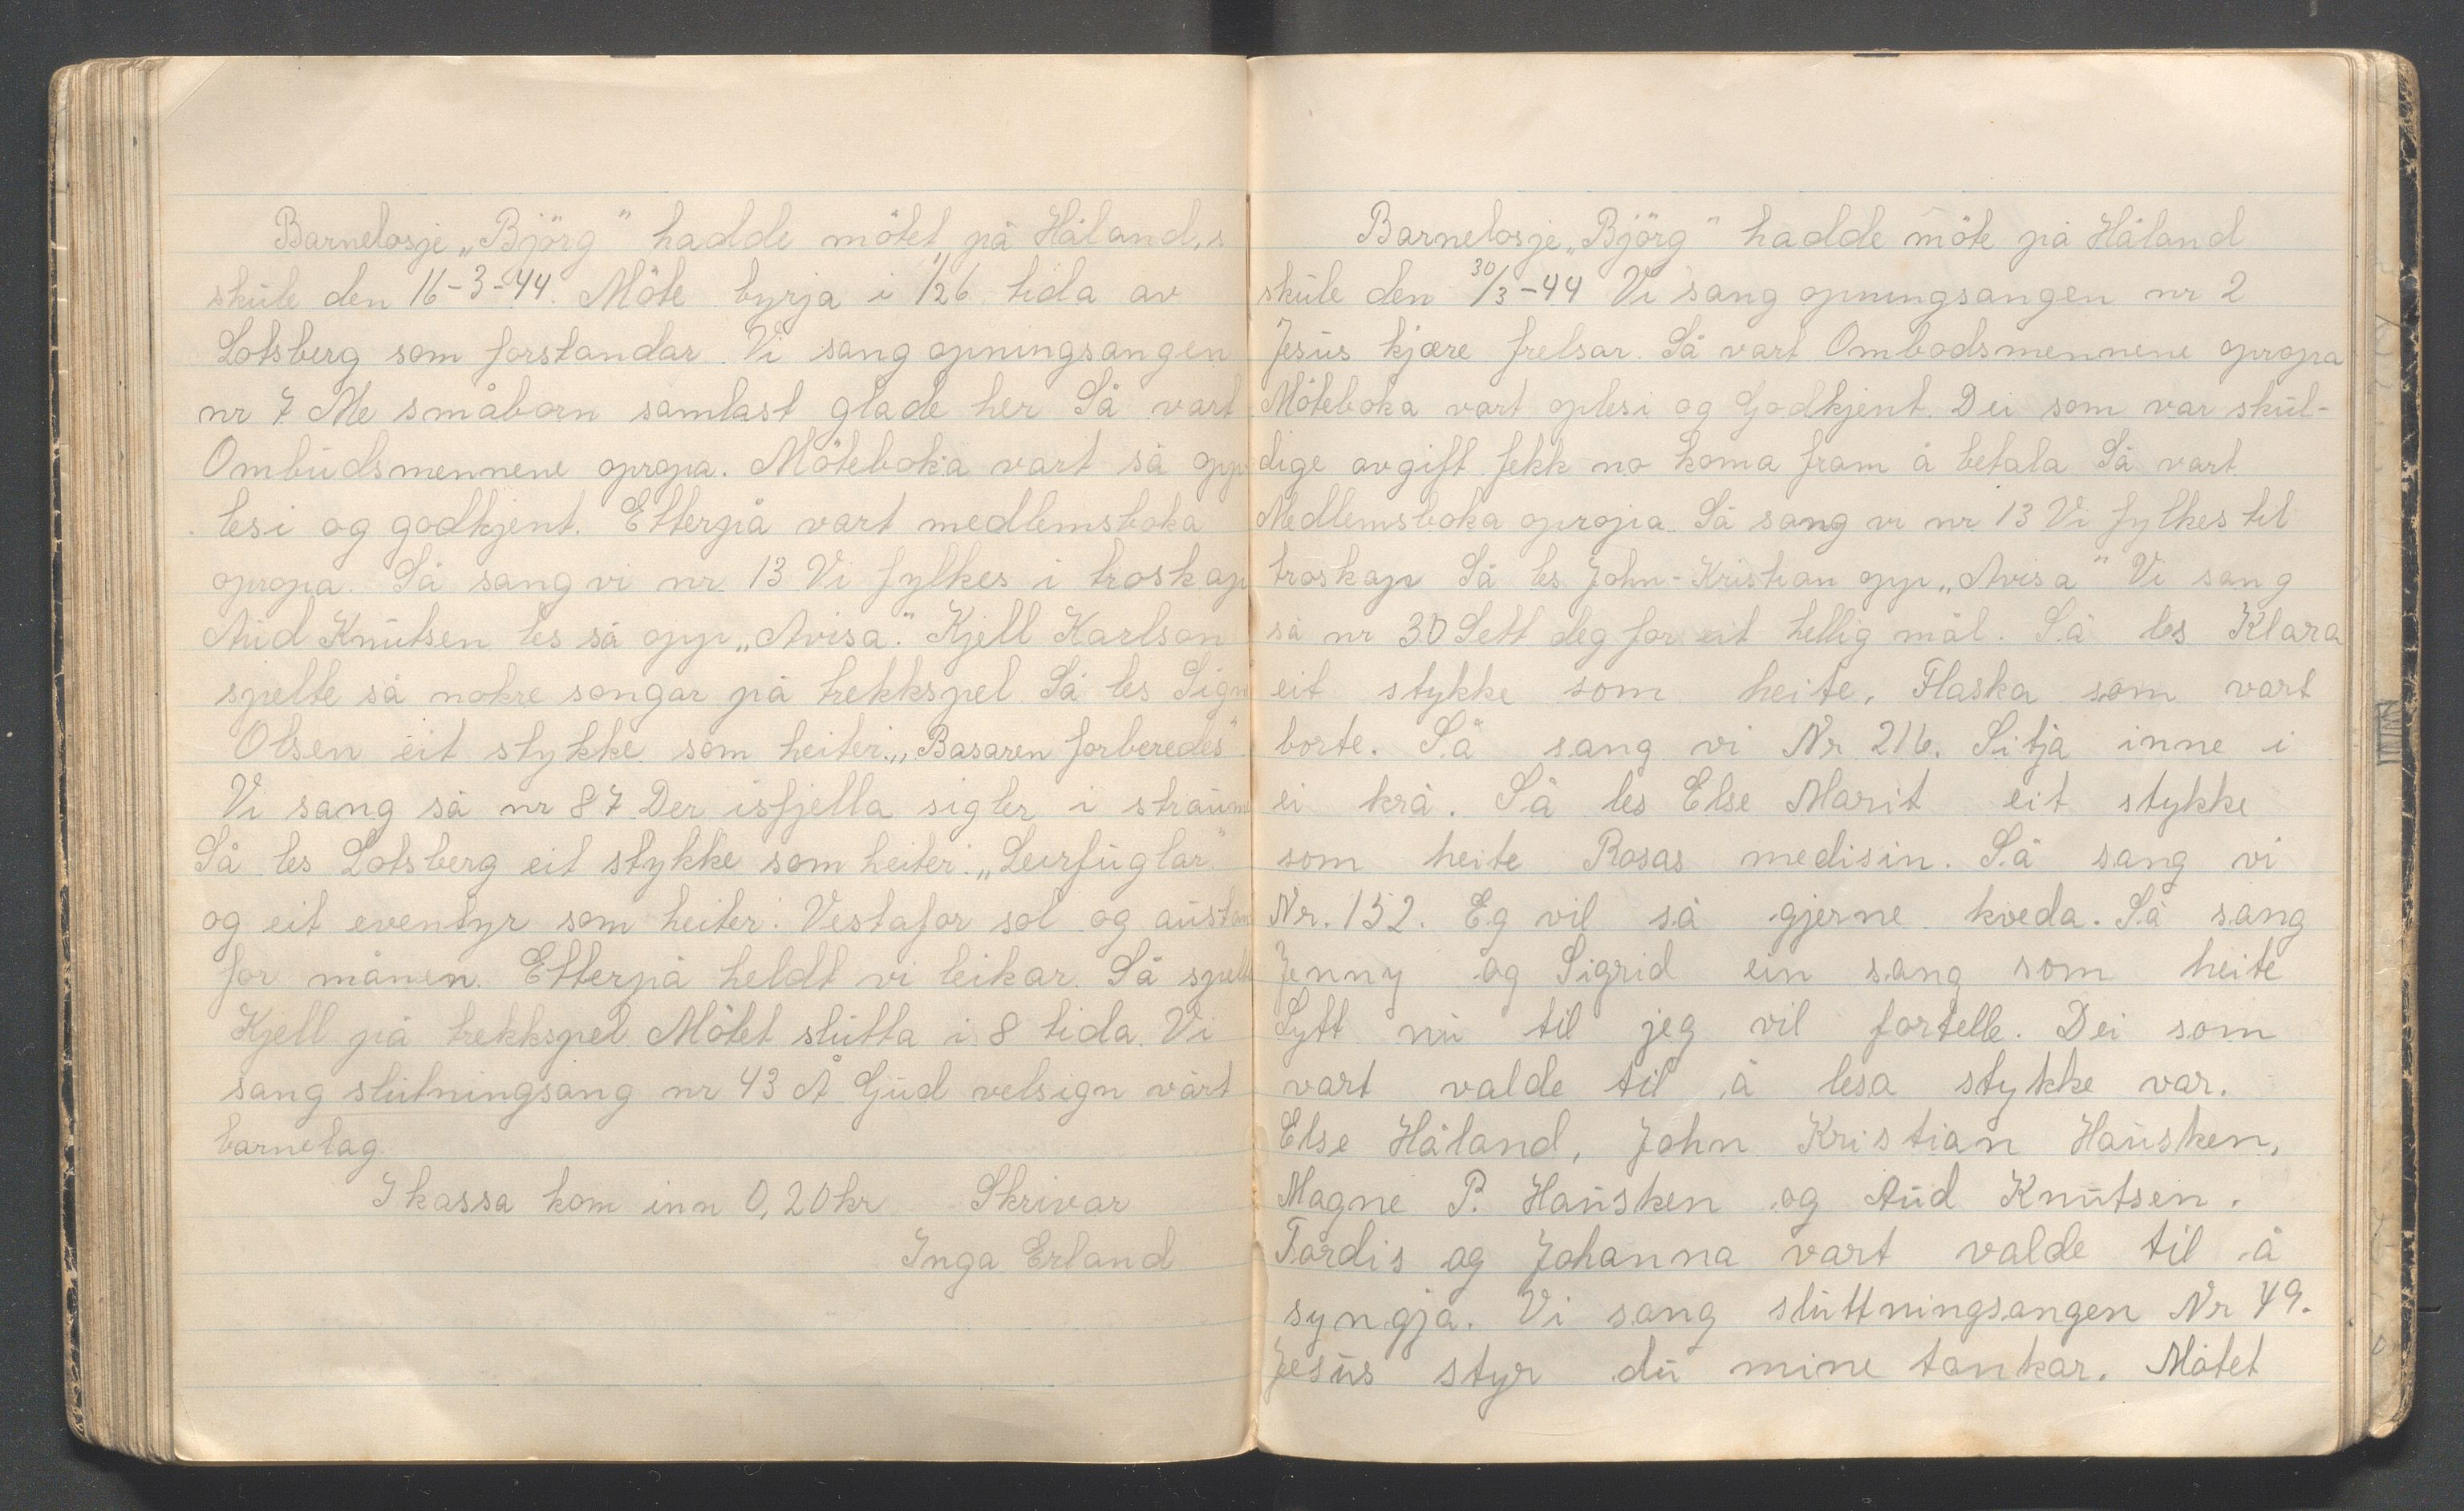 Barnelosje „Björg" hadde mötet på Håland,s
skule den 16-3-44. Möte byrja i 1/2 6 tida av
Lotsberg som forstandar. Vi sang opningsangen
nr 7. Me småborn samlast glade her Så vart
Ombudsmennene opropa. Möteboka vart så opp
lesi og godkjent. Etterpå vart medlemsboka
opropa. Så sang vi nr. 13 Vi fylkes i troskap
Aud Knutsen les så opp „Avisa." Kjell Karlson
spelte så nokre songar på trekkspel. Så les Sign
Olsen eit stykke som heiter: „Basaren forberedes"
Vi sang så nr 87 Der isfjella sigler i straum
Så les Lotsberg eit stykke som heiter: „Leirfuglar"
og eit eventyr som heiter: Vestafor sol og austan
for månen. Etterpå heldt vi leikar. Så spelte
Kjell på trekkspel Mötet slutta i 8 tida. Vi
sang slutningsang nr 43 Å Gud velsign vårt
barnelag.
I kassa kom inn 0,20 kr Skrivar
Inga Erland
Barnelosje „Björg" hadde möte på Håland
skule den 30/3-44 Vi sang opningsangen nr 2
Jesus kjære frelsar. Så vart Ombodsmennene opropa
Möteboka vart oplesi og Godkjent. Dei som var skul-
dige avgift fekk no koma fram å betala Så vart
Medlemsboka opropa. Så sang vi nr 13 Vi fylkes til
troskap Så les John-Kristian opp „Avisa" Vi sang
så nr 30 Sett deg for eit hellig mål. Så les Klara
eit stykke som heite, Flaska som vart
borte. Så sang vi Nr 216. Sitja inne i
ei krå. Så les Else Marit eit stykke
som heite Rosas medisin. Så sang vi
Nr. 152. Eg vil så gjerne kveda. Så sang
Jenny og Sigrid ein sang som heite
Lytt nu til jeg vil fortelle. Dei som
vart valde til å lesa stykke var.
Else Håland, John Kristian Hausken,
Magne P. Hausken og Aud Knutsen.
Tordis og Johanna vart valde til å
syngja. Vi sang sluttningsangen Nr 49.
Jesus styr du mine tankar. Mötet